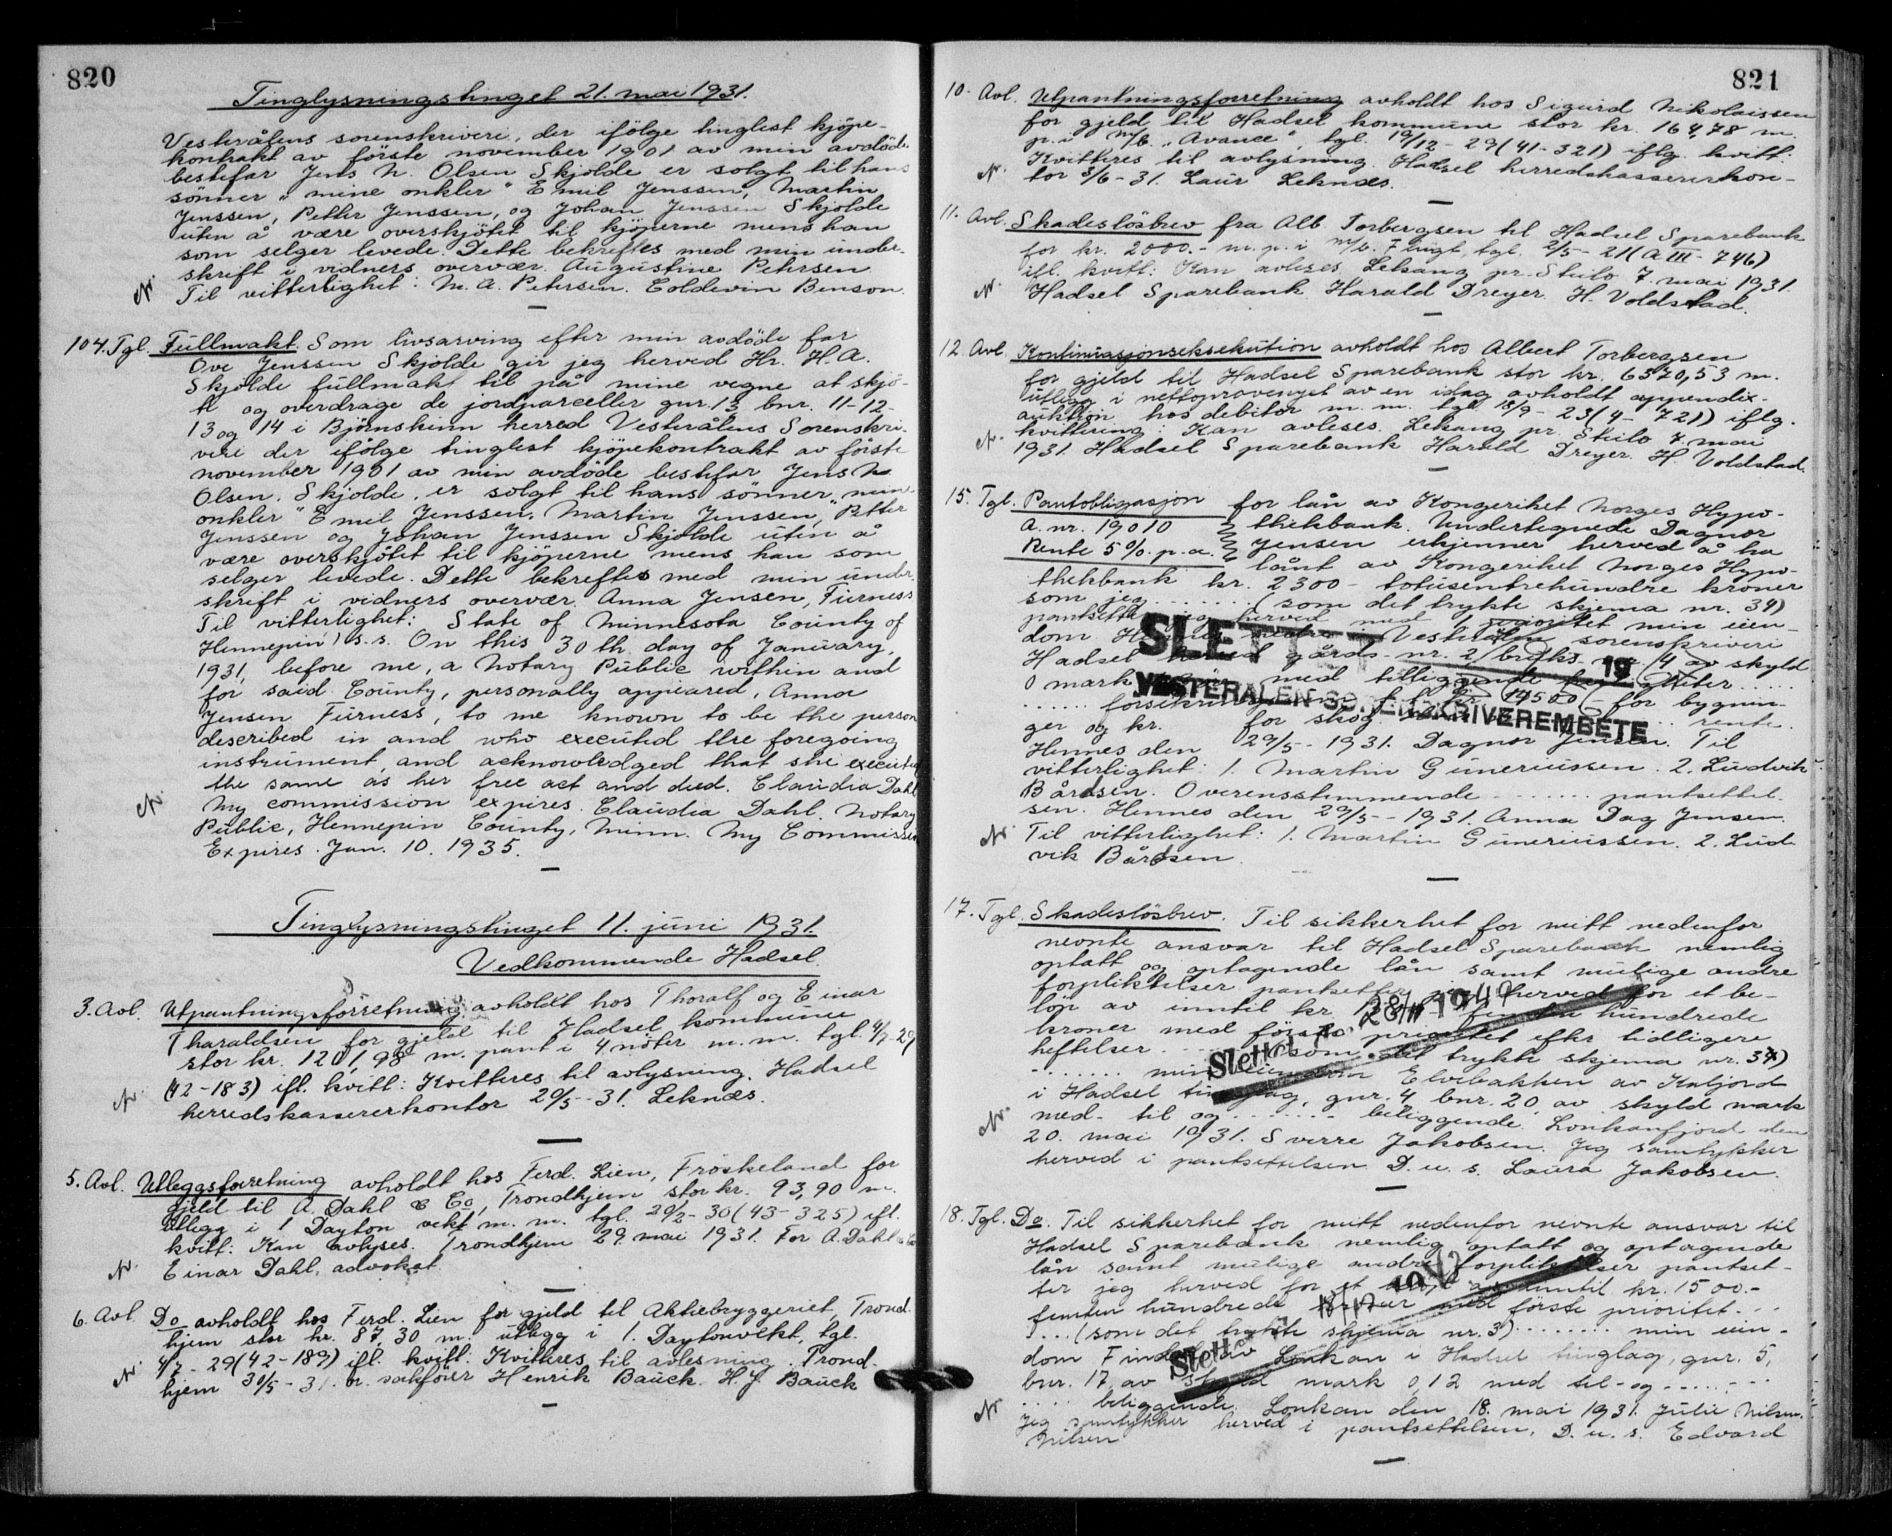 820
Tinglysningstinget 21. mai 1931.
Vesterålens sorenskriveri, der ifölge tinglest kjöpe-
kontrakt av förste november 1901 av min avdöde
bestefar Jens N. Olsen Skjolde er solgt til hans
sönner "mine onkler" Emil Jenssen, Martin
Jenssen, Petter Jenssen, og Johan Jenssen Skjolde
uten å være overskjötet til kjöperne mens han
som selger levede. Dette bekreftes med min under-
skrift i vidners overvær. Augustine Petersen
Nr. Til vitterlighet: M. A. Petersen. Coldevin Benson.
104. Tgl. Fullmakt. Som livsarving efter min avdöde far
Ove Jenssen Skjolde gir jeg herved Hr. H. A.
Skjolde fullmakt til på mine vegne at skjö-
te og overdrage de jordparceller gnr. 13 bnr. 11-12-
13 og 14 i Bjørnskinn herred Vesterålens Sorenskri-
veri der ifölge tinglest kjöpekontrakt av förste
november 1901 av min avdöde bestefar Jens N.
Olsen. Skjolde, er solgt til hans sönner, "mine
onkler" Emil Jenssen, Martin Jenssen, Petter
Jenssen og Johan Jenssen Skjolde uten å
være overskjötet til kjöperne mens han som
selger levede. Dette bekreftes med min under-
skrift i vidners overvær. Anna Jensen, Furness
Til vitterlighet: State of Minnesota County of
Hennepin) s.s. On this 30 th. day of January,
1931, before me, a Notary Public within and
for said County, personally appeared, Anna
Jensen Furness, to me known to be the person
described in and who executed the foregoing
instrument, and acknowledged that she executed
the same as her free act and deed. Claudia Dahl
Nr. My commission expires. Claudia Dahl. Notary
Public, Hennepin County, Minn. My Commission
Expires. Jan. 10. 1935.
Tinglysningstinget 11. juni 1931.
Vedkommende Hadsel.
3. Avl. Utpantningsforretning avholdt hos Thoralf og Einar
Tharaldsen for gjeld til Hadsel kommune
stor kr. 1201,98 m. pant i 4 nöter m. m. tgl. 4/7-29
(42-183) ifl. kvitt: Kvitteres til avlysning. Hadsel
Nr. herredskassererkontor 29/5-31. Leknæs.
5. Avl. Utleggsforretning avholdt hos Ferd. Lien, Fröskeland for
gjeld til A. Dahl & Co, Trondhjem stor kr. 93,90 m.
utlegg i 1 Dayton vekt m. m. tgl. 20/2-30 (43-325) ifl.
kvitt: Kan avlyses. Trondhjem 29. mai 1931. For A. Dahl & Co
Nr. Einar Dahl, advokat.
6. Avl. Do avholdt hos Ferd. Lien for gjeld til Aktiebryggeriet, Trond-
hjem stor kr. 87,30 m. utlegg i 1. Daytonvekt, tgl.
4/7-29 (42-189) ifl. kvitt: Kvitteres til avlesning. Trond-
Nr. hjem 30/5-31. or. sakförer Henrik Bauck. H. J. Bauck
821
10. Avl. Utpantningsforretning avholdt hos Sigurd Nikolaissen
for gjeld til Hadsel kommune stor kr. 164,78 m.
p. i m/b. "Avance", tgl. 19/12-29 (41-321) iflg. kvitt:
Kvitteres til avlysning. Hadsel herredskassererkon-
Nr. tor 3/6-31. Laur Leknæs.
11. Avl. Skadeslösbrev fra Alb. Torbergsen til Hadsel Sparebank
for kr. 2000.- m. p. i m/b. Flugt, tgl. 2/5-21 (A III-746)
ifl. kvitt: Kan avleses. Lekang pr. Stilo 7 mai 1931.
Nr. Hadsel Sparebank Harald Dreyer. H. Voldstad.
12. Avl. Kontinuasjonseksekution avholdt hos Albert Torbergsen
for gjeld til Hadsel Sparebank stor kr. 6370,53 m.
utlegg i nettoprovenyet av en idag avholdt appendix-
auktion hos debitor m. m. tgl. 18/9-23 (4-721) iflg.
kvittering: Kan avleses. Lekang pr. Stilo 7. mai
Nr. 1931. Hadsel Sparebank Harald Dreyer. H. Voldstad.
15. Tgl. Pantobligasjon for lån av Kongeriket Norges Hypo-
A. nr. 19010 thekbank. Undertegnede Dagnor
Rente 5 % p. a. Jensen erkjenner herved å ha
lånt av Kongeriket Norges Hypo-
thekbank kr. 2300 - totusentrehundre kroner
som jeg ........ (som det trykte skjema nr. 34)
pantsetter jeg herved med 1. prioritet min eien-
dom Vesterålen sorenskriveri
Hadsel herred gårds-nr. 2 bruks-nr. 14 av skyld
0 mark med tilliggende
...... forsikr 14500 for bygnin-
ger og kr. for skog rent
Hennes den 29/5-1931. Dagnor Jensen. Til
vitterlighet: 1. Martin Guneriussen. 2. Ludvik
Bårdsen. Overensstemmende ........ pantsettel-
sen. Hennes den 29/5-1931. Anna Dag Jensen.
Nr. Til vitterlighet: 1. Martin Guneriussen. 2. Lud-
vik Bårdsen.
SLETTET 19
VESTERÅLEN SORENSKRIVEREMBETE
17. Tgl. Skadeslösbrev. Til sikkerhet for mitt nedenfor
nevnte ansvar til Hadsel Sparebank nemlig
optatt og optagende lån samt mulige andre
forpliktelser pantsetter jeg herved for et be-
löp av inntil kr. hundrede
kroner med förste prioritet efter tidligere
heftelser ........ (som det trykte skjema nr. 3)
........ min eiendom Elvebakken av Kaljord
i Hadsel tinglag, gnr. 4 bnr. 20, av skyld mark
med til og ........ beliggende. Lonkanfjord den
Nr. 20. mai 1931. Sverre Jakobsen. Jeg samtykker
herved i pantsettelsen D. u. s. Laura Jakobsen.
Slettet 28/11 1949
18. Tgl. Do. Til sikkerhet for mitt nedenfor nevnte ansvar til
Hadsel Sparebank nemlig optatt og optagende
lån samt mulige andre forpliktelser pantset-
ter jeg herved for et beløp av inntil kr. 1500.-
femten hundrede kroner med förste prioritet ...
... (som det trykte skjema nr. 3) ........ min eien-
dom av Lonkan i Hadsel tinglag, gnr. 5,
bnr. 17, av skyld mark 0,12 med til-og ........
.... beliggende. Lonkan den 18. mai 1931. Julie Nilsen.
Nr. Jeg samtykker herved i pantsettelsen. D. u. s. Edvard
Nilsen
Slettet